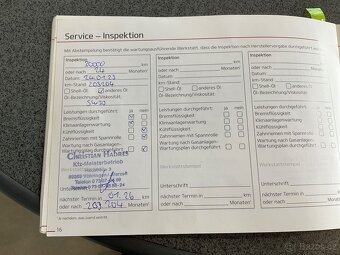 Service – Inspektion
Mit Abstempelung bestätigt die wartungsausführende Werkstatt, dass die Inspektion nach Herstellervorgabe durchgeführt
Inspektion
30000 km
oder nach 24 Monaten¹
Datum 24.01.23
km-Stand 203204
Shell-Öl anderes Öl
Öl-Bezeichnung/Viskosität:
5W30
Leistungen durchgeführt: ja nein
Bremsflüssigkeit
Klimaanlagenwartung
Kühlflüssigkeit
Zahnriemen mit Spannrolle
Wartung nach Gasanlagen-
Wartungsplan durchgeführt
CHRISTIAN HABRES
Kfz-Meisterbetrieb
Unterschrift
nächster Termin in 01.26 km
oder nach 203 204 Monaten¹
¹ Je nachdem, was zuerst eintritt
16
Inspektion
km
oder nach Monaten¹
Datum
km-Stand
Shell-Öl anderes Öl
Öl-Bezeichnung/Viskosität:
Leistungen durchgeführt: ja nein
Bremsflüssigkeit
Klimaanlagenwartung
Kühlflüssigkeit
Zahnriemen mit Spannrolle
Wartung nach Gasanlagen-
Wartungsplan durchgeführt
Werkstattstempel
Unterschrift
nächster Termin in km
oder nach Monaten¹
Inspektion
oder nach
Datum
km-Stand
Shell-Öl
Öl-Bezeichnung/Viskosität:
Leistungen durchgeführt:
Bremsflüssigkeit
Klimaanlagenwartung
Kühlflüssigkeit
Zahnriemen mit Spannrolle
Wartung nach Gasanlagen-
Wartungsplan durchgeführt
Werkstattstempel
Unterschrift
nächster Termin in
oder nach